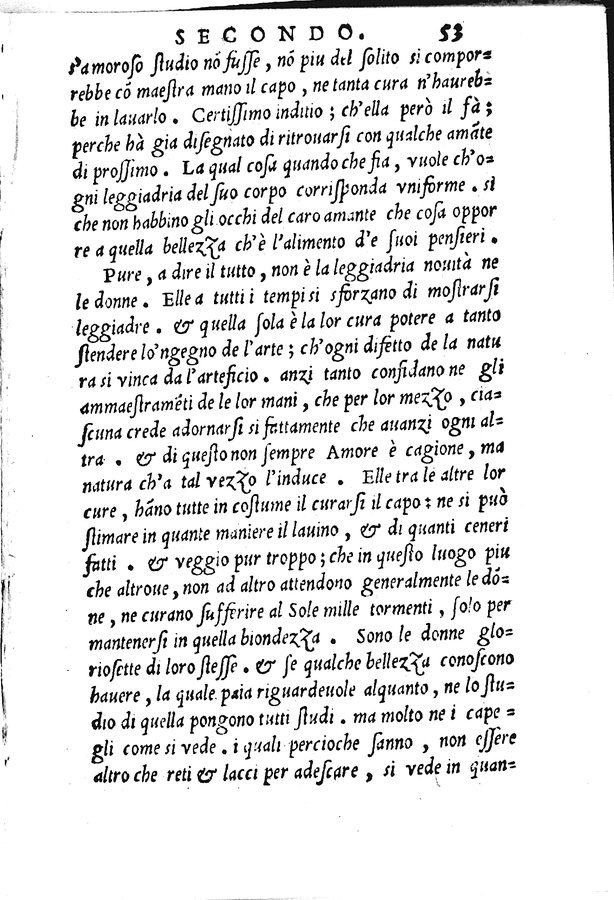 SECONDO. 53
s'amoroso ſtudio nõ fuſſe, nõ piu del ſolito si compor=
rebbe cõ maeſtra mano il capo, ne tanta cura n'haureb=
be in lauarlo. Certiſſimo inditio; ch'ella però il fà;
perche hà gia diſegnato di ritrouarſi con qualche amãte
di proſſimo. La qual coſa quando che ſia, vuole ch'o=
gni leggiadria del ſuo corpo corriſponda vniforme. ſi
che non habbino gli occhi del caro amante che coſa oppor
re a quella bellezza ch'è l'alimento d'e ſuoi penſieri.
Pure, a dire il tutto, non è la leggiadria nouità ne
le donne. Elle a tutti i tempi si sforzano di moſtrarſi
leggiadre. & quella ſola è la lor cura potere a tanto
ſtendere lo'ngegno de l'arte; ch'ogni difetto de la natu
ra si vinca da l'arteficio. anzi tanto confidano ne gli
ammaeſtramẽti de le lor mani, che per lor mezzo, cia=
ſcuna crede adornarſi ſi fattamente che auanzi ogni al=
tra. & di queſto non ſempre Amore è cagione, ma
natura ch'a tal vezzo l'induce. Elle tra le altre lor
cure, hãno tutte in coſtume il curarſi il capo: ne si può
ſtimare in quante maniere il lauino, & di quanti ceneri
fatti. & veggio pur troppo; che in queſto luogo piu
che altroue, non ad altro attendono generalmente le dõ=
ne, ne curano ſufferire al Sole mille tormenti, ſolo per
mantenerſi in quella biondezza. Sono le donne glo=
rioſette di loro ſteſſe. & ſe qualche bellezza conoſcono
hauere, la quale paia riguardeuole alquanto, ne lo ſtu=
dio di quella pongono tutti ſtudi. ma molto ne i cape=
gli come si vede. i quali percioche ſanno, non eſſere
altro che reti & lacci per adeſcare, si vede in quan=